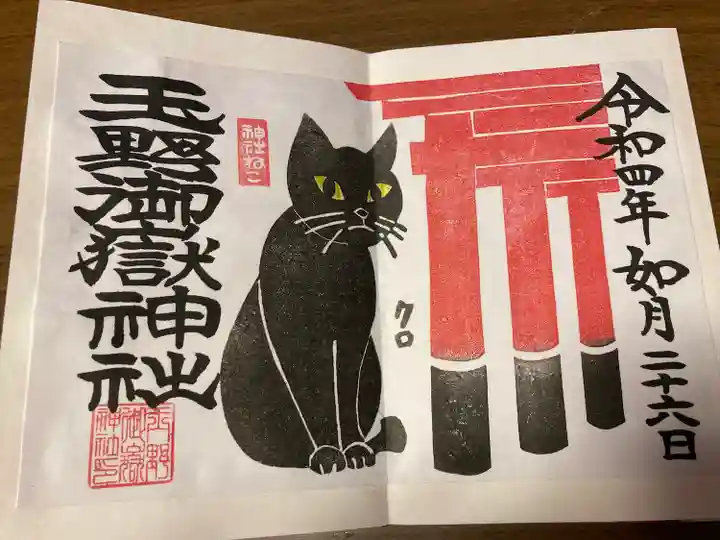 令和四年 如月 二十六日
クロ
神社ねこ
玉野御嶽神社
玉野
御嶽
神社印